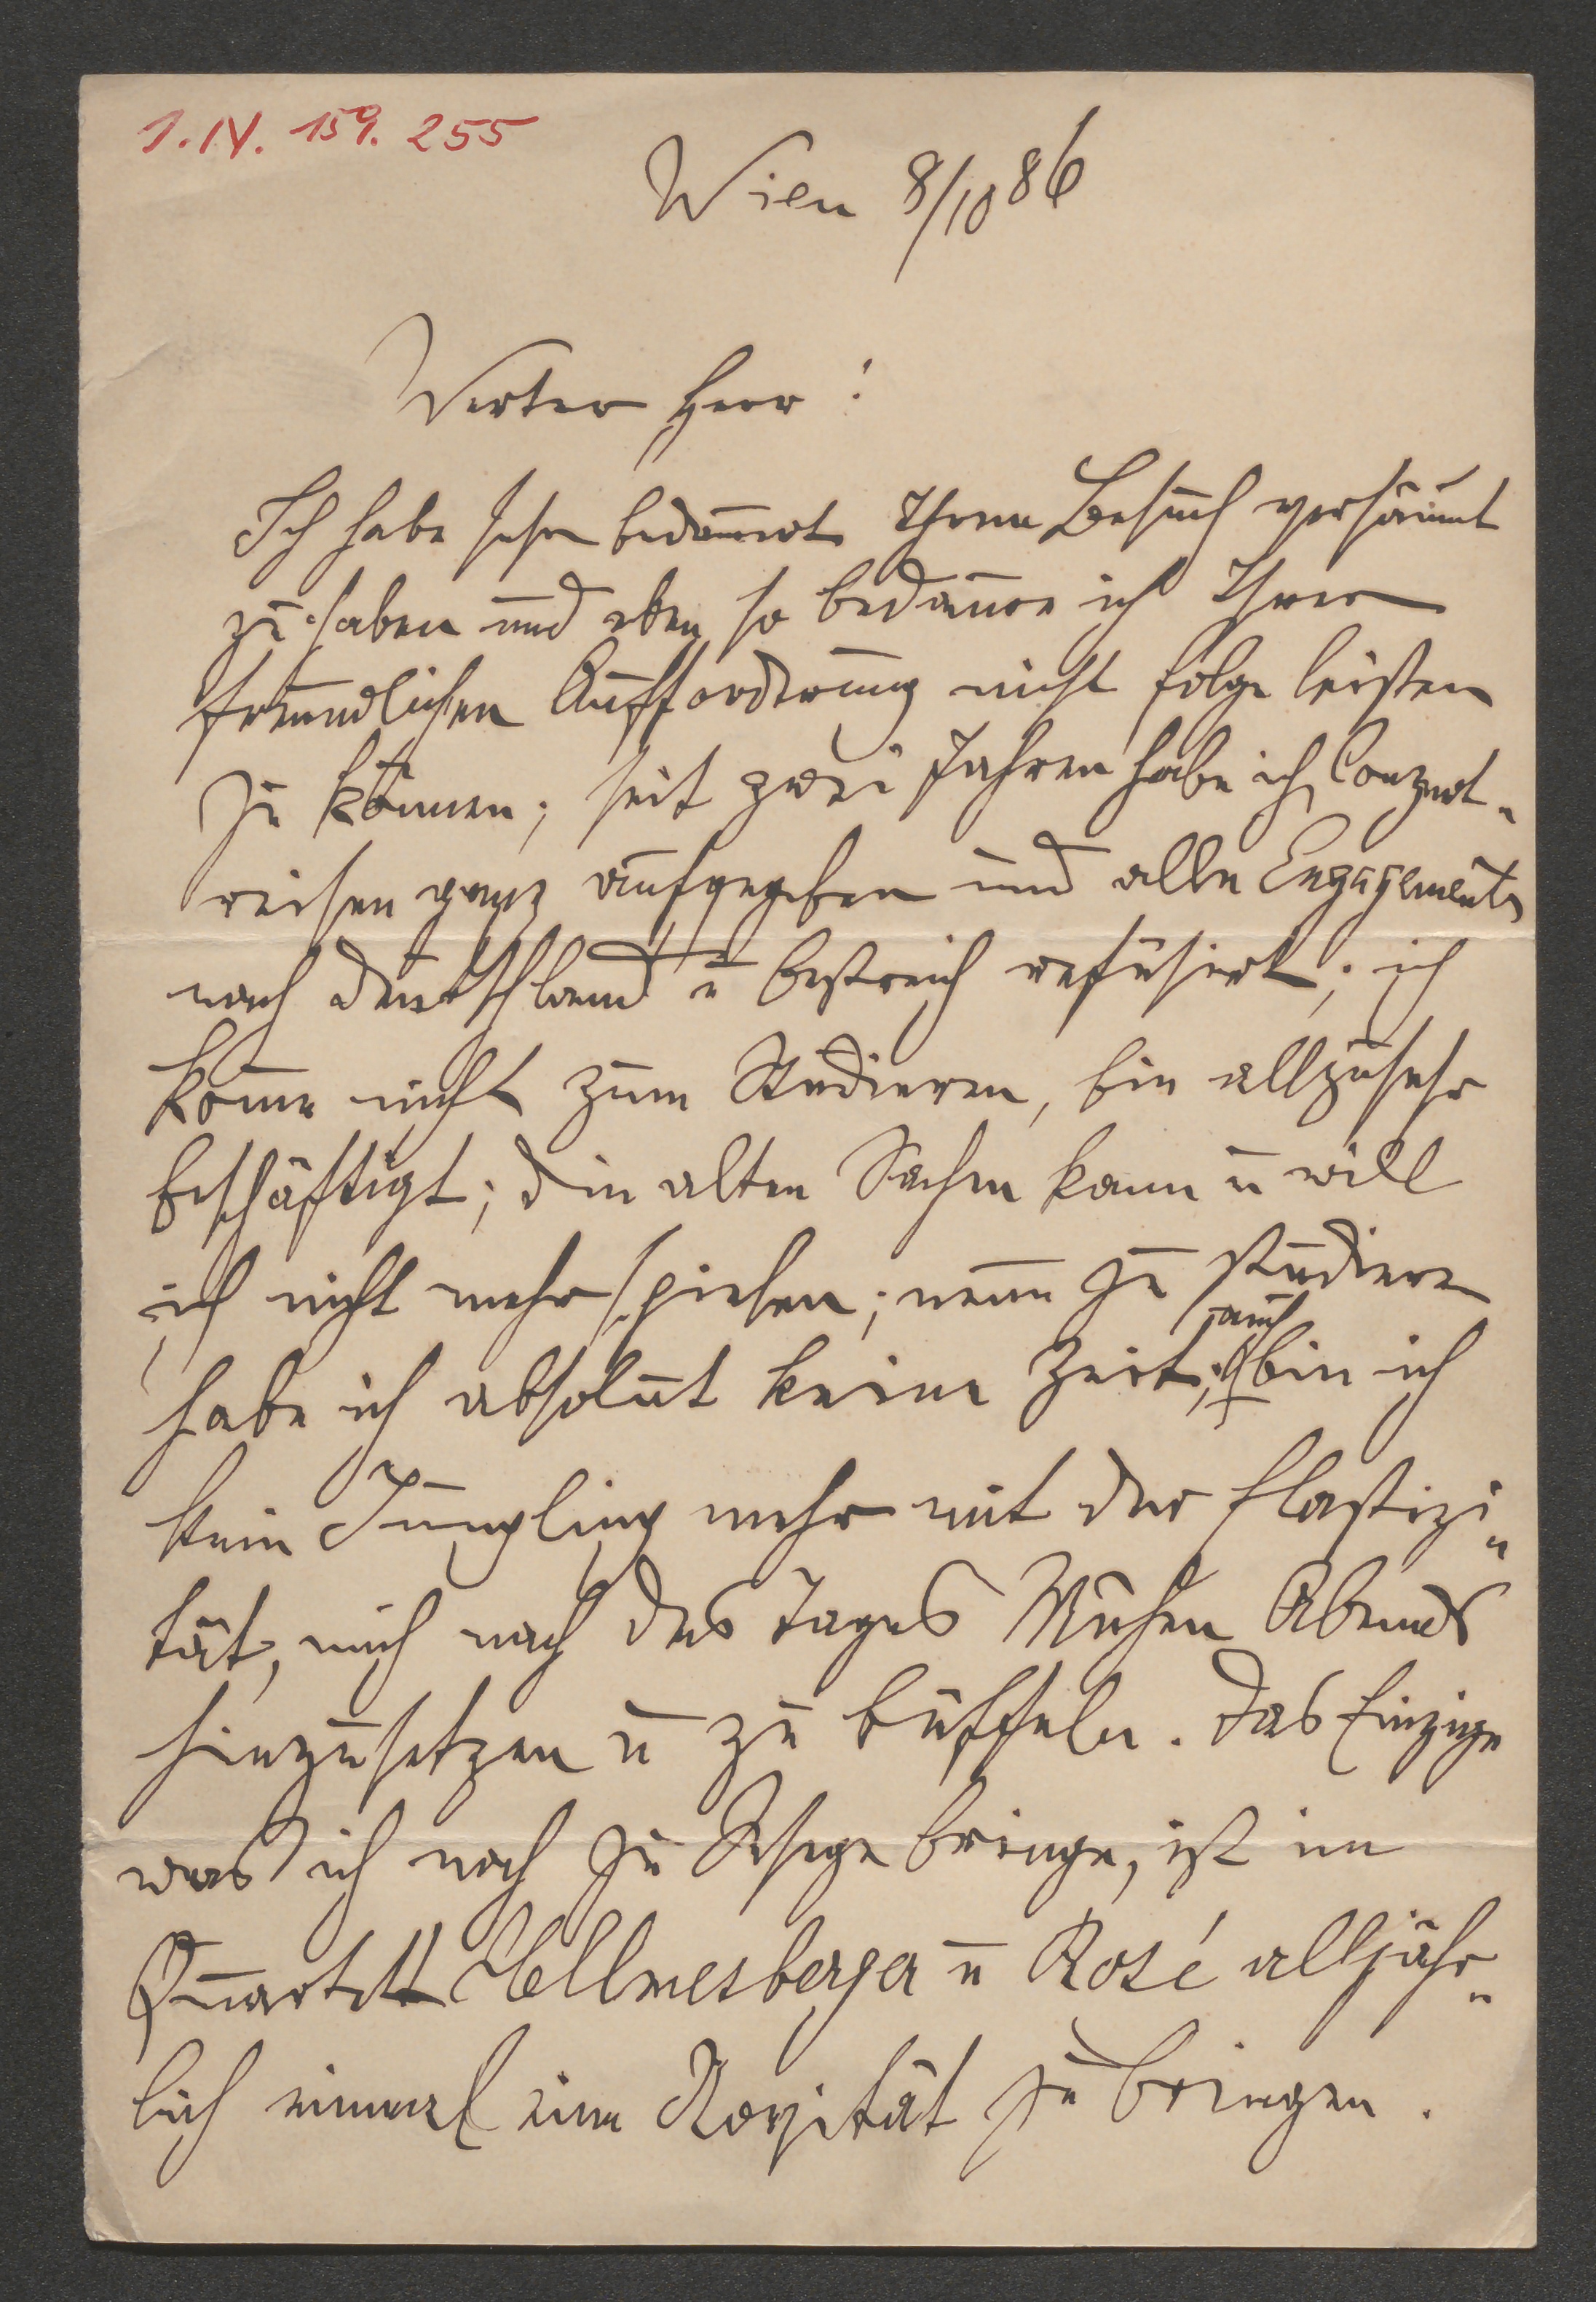 1.IV.159.255
Wien 8/10 86
Werter Herr!
Ich habe sehr bedauert Ihren Besuch versäumt
zu haben und eben so bedaure ich Ihrer
freundlichen Aufforderung nicht folge leisten
zu können; seit zwei Jahren habe ich Conzert-
reisen ganz aufgegeben und alle Engagements
nach Deutschland u Östreich refüsirt; ich
kom̄e nicht zum Studieren, bin allzusehr
beschäftigt; die alten Sachen kann u will
ich nicht mehr spielen; neue zu studieren
habe ich absolut keine Zeit; auch bin ich
kein Jüngling mehr mit der Elastizi-
tät, mich nach des Tages Mühen Abends
hinzusetzen u zu büffeln. Das Einzige
was ich noch zu Wege bringe, ist im
Quartett Hellmesberger u Rosé alljähr-
lich einmal eine Novität zu bringen.